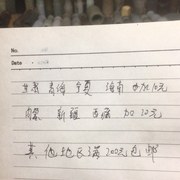 No.
Date
甘肃 青海 宁夏 海南 加10元
内蒙 新疆 西藏 加12元
其他地区满200元包邮